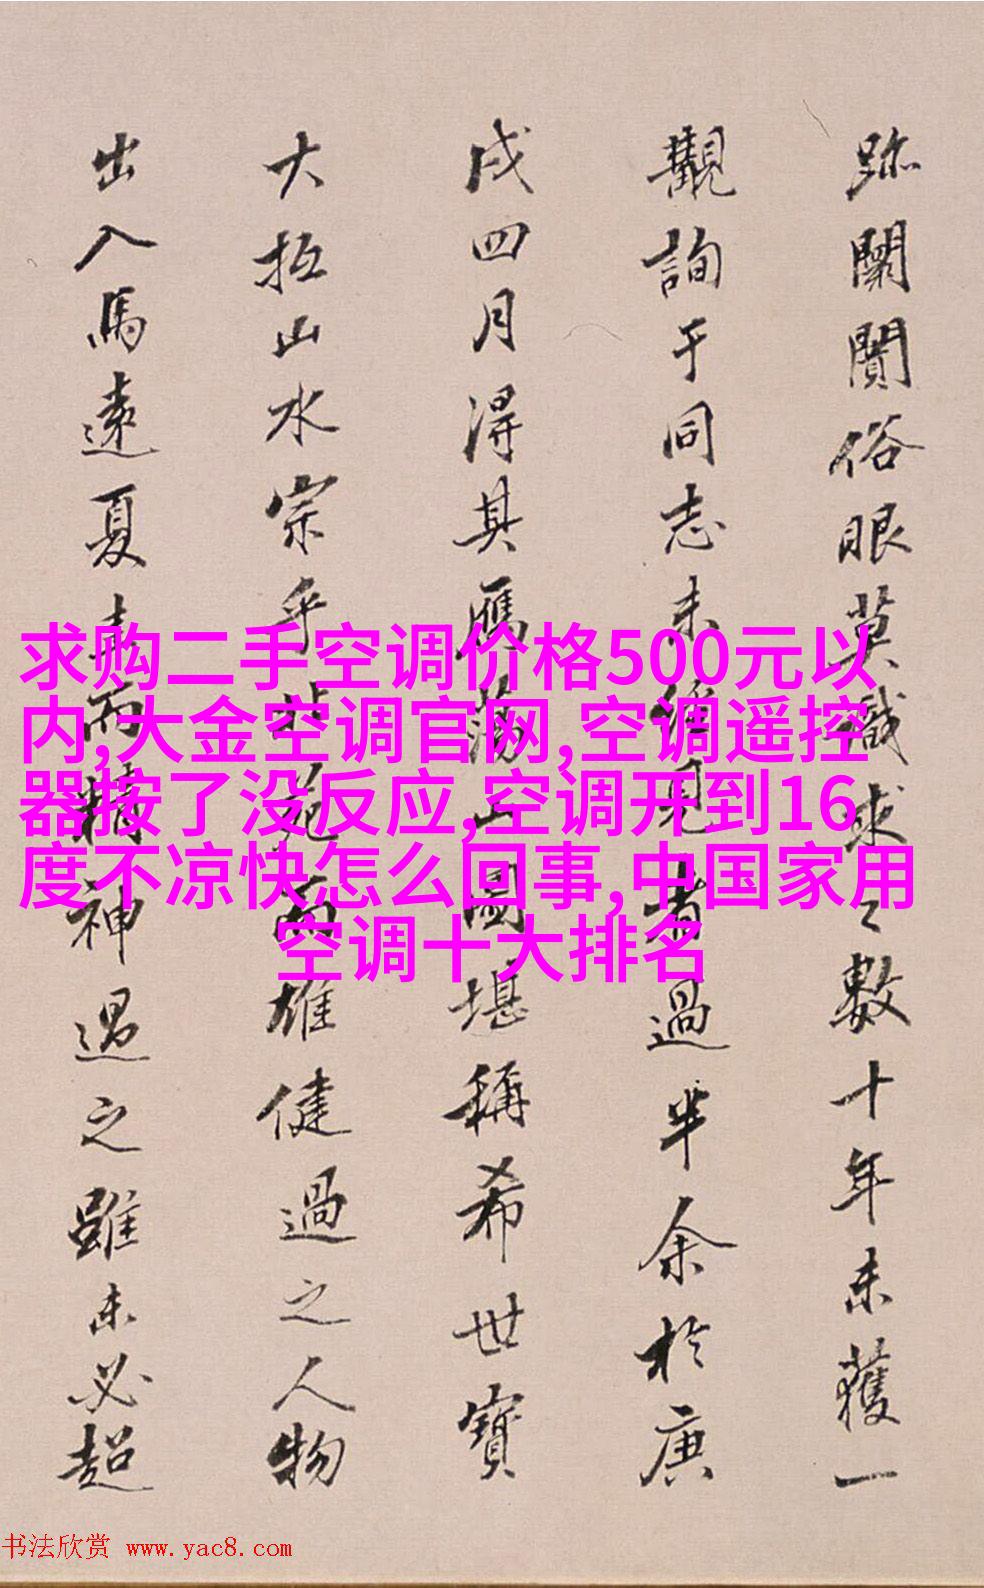 跡闤闠俗眼莫識求之數十年未獲一
觀詢于同志未僅見者過半余於庚
戌四月得其鴈蕩山圖堪稱希世寶
大抵山水宗乎北苑而雄健過之人物
出入馬遠夏圭而精神過之雖未必超
求购二手空调价格500元以
内,大金空调官网,空调遥控
器按了没反应,空调开到16
度不凉快怎么回事,中国家用
空调十大排名
书法欣赏 www.yac8.com